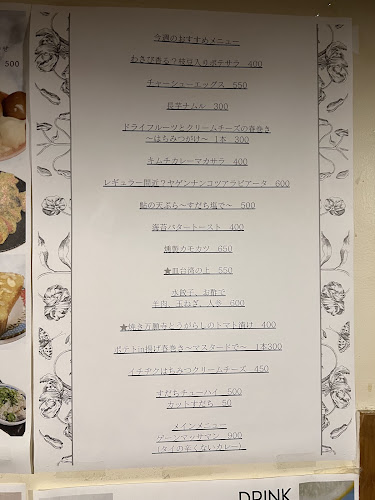 300
今週のおすすめメニュー
わさび香る？枝豆入りポテサラ　400
チャーシューエッグス　550
長芋ナムル　300
ドライフルーツとクリームチーズの春巻き
～はちみつがけ～　1本　300
キムチカレーマカサラ　400
レギュラー間近？ヤゲンナンコツアラビアータ　600
鮎の天ぷら～すだち塩で～　500
海苔バタートースト　400
燻製カモカツ　650
★皿台湾の上　550
水餃子、お酢で
羊肉、玉ねぎ、人参　600
★焼き万願寺とうがらしのトマト漬け　400
ポテトin揚げ春巻き～マスタードで～　1本300
イチヂクはちみつクリームチーズ　450
すだちチューハイ　500
カットすだち　50
メインメニュー
ゲーンマッサマン　900
（タイの辛くないカレー）
DRINK